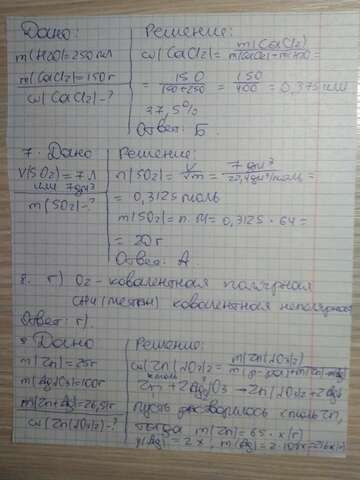 Дано:
m(H2O)=250 мл
m(CaCl2)=150 г
ω(CaCl2)-?
Решение:
ω(CaCl2)= m(CaCl2) / m(CaCl2)+mH2O =
= 150 / 150+250 = 150 / 400 = 0,375 или
37,5%
Ответ: Б.
7. Дано
V(SO2)=7 л
или 7 дм³
m(SO2)-?
Решение:
n(SO2)= V / Vm = 7 дм³ / 22,4 дм³/моль =
= 0,3125 моль
m(SO2)= n·M= 0,3125 · 64 =
= 20 г
Ответ: А.
8. г) O2- ковалентная полярная
CH4 (метан) ковалентная неполярная
Ответ: г).
9 Дано
m(Zn)=25г
m(AgNO3)=100г
m(Zn+Ag)=26,51г
ω(Zn(NO3)2)-?
Решение:
ω(Zn(NO3)2= m(Zn(NO3)2)
x моль
Zn + 2AgNO3 → Zn(NO3)2 + 2Ag
пусть растворилось x моль Zn,
тогда m(Zn)= 65 · x(г)
ν(Ag) = 2x, m(Ag)= 2·108x=216x(г)